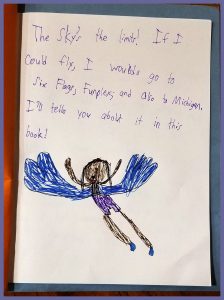 The sky's the limit! If I
could fly, I woulds go to
Six Flags, Funplex, and also to Michigan.
I'll tells you about it in this
book!